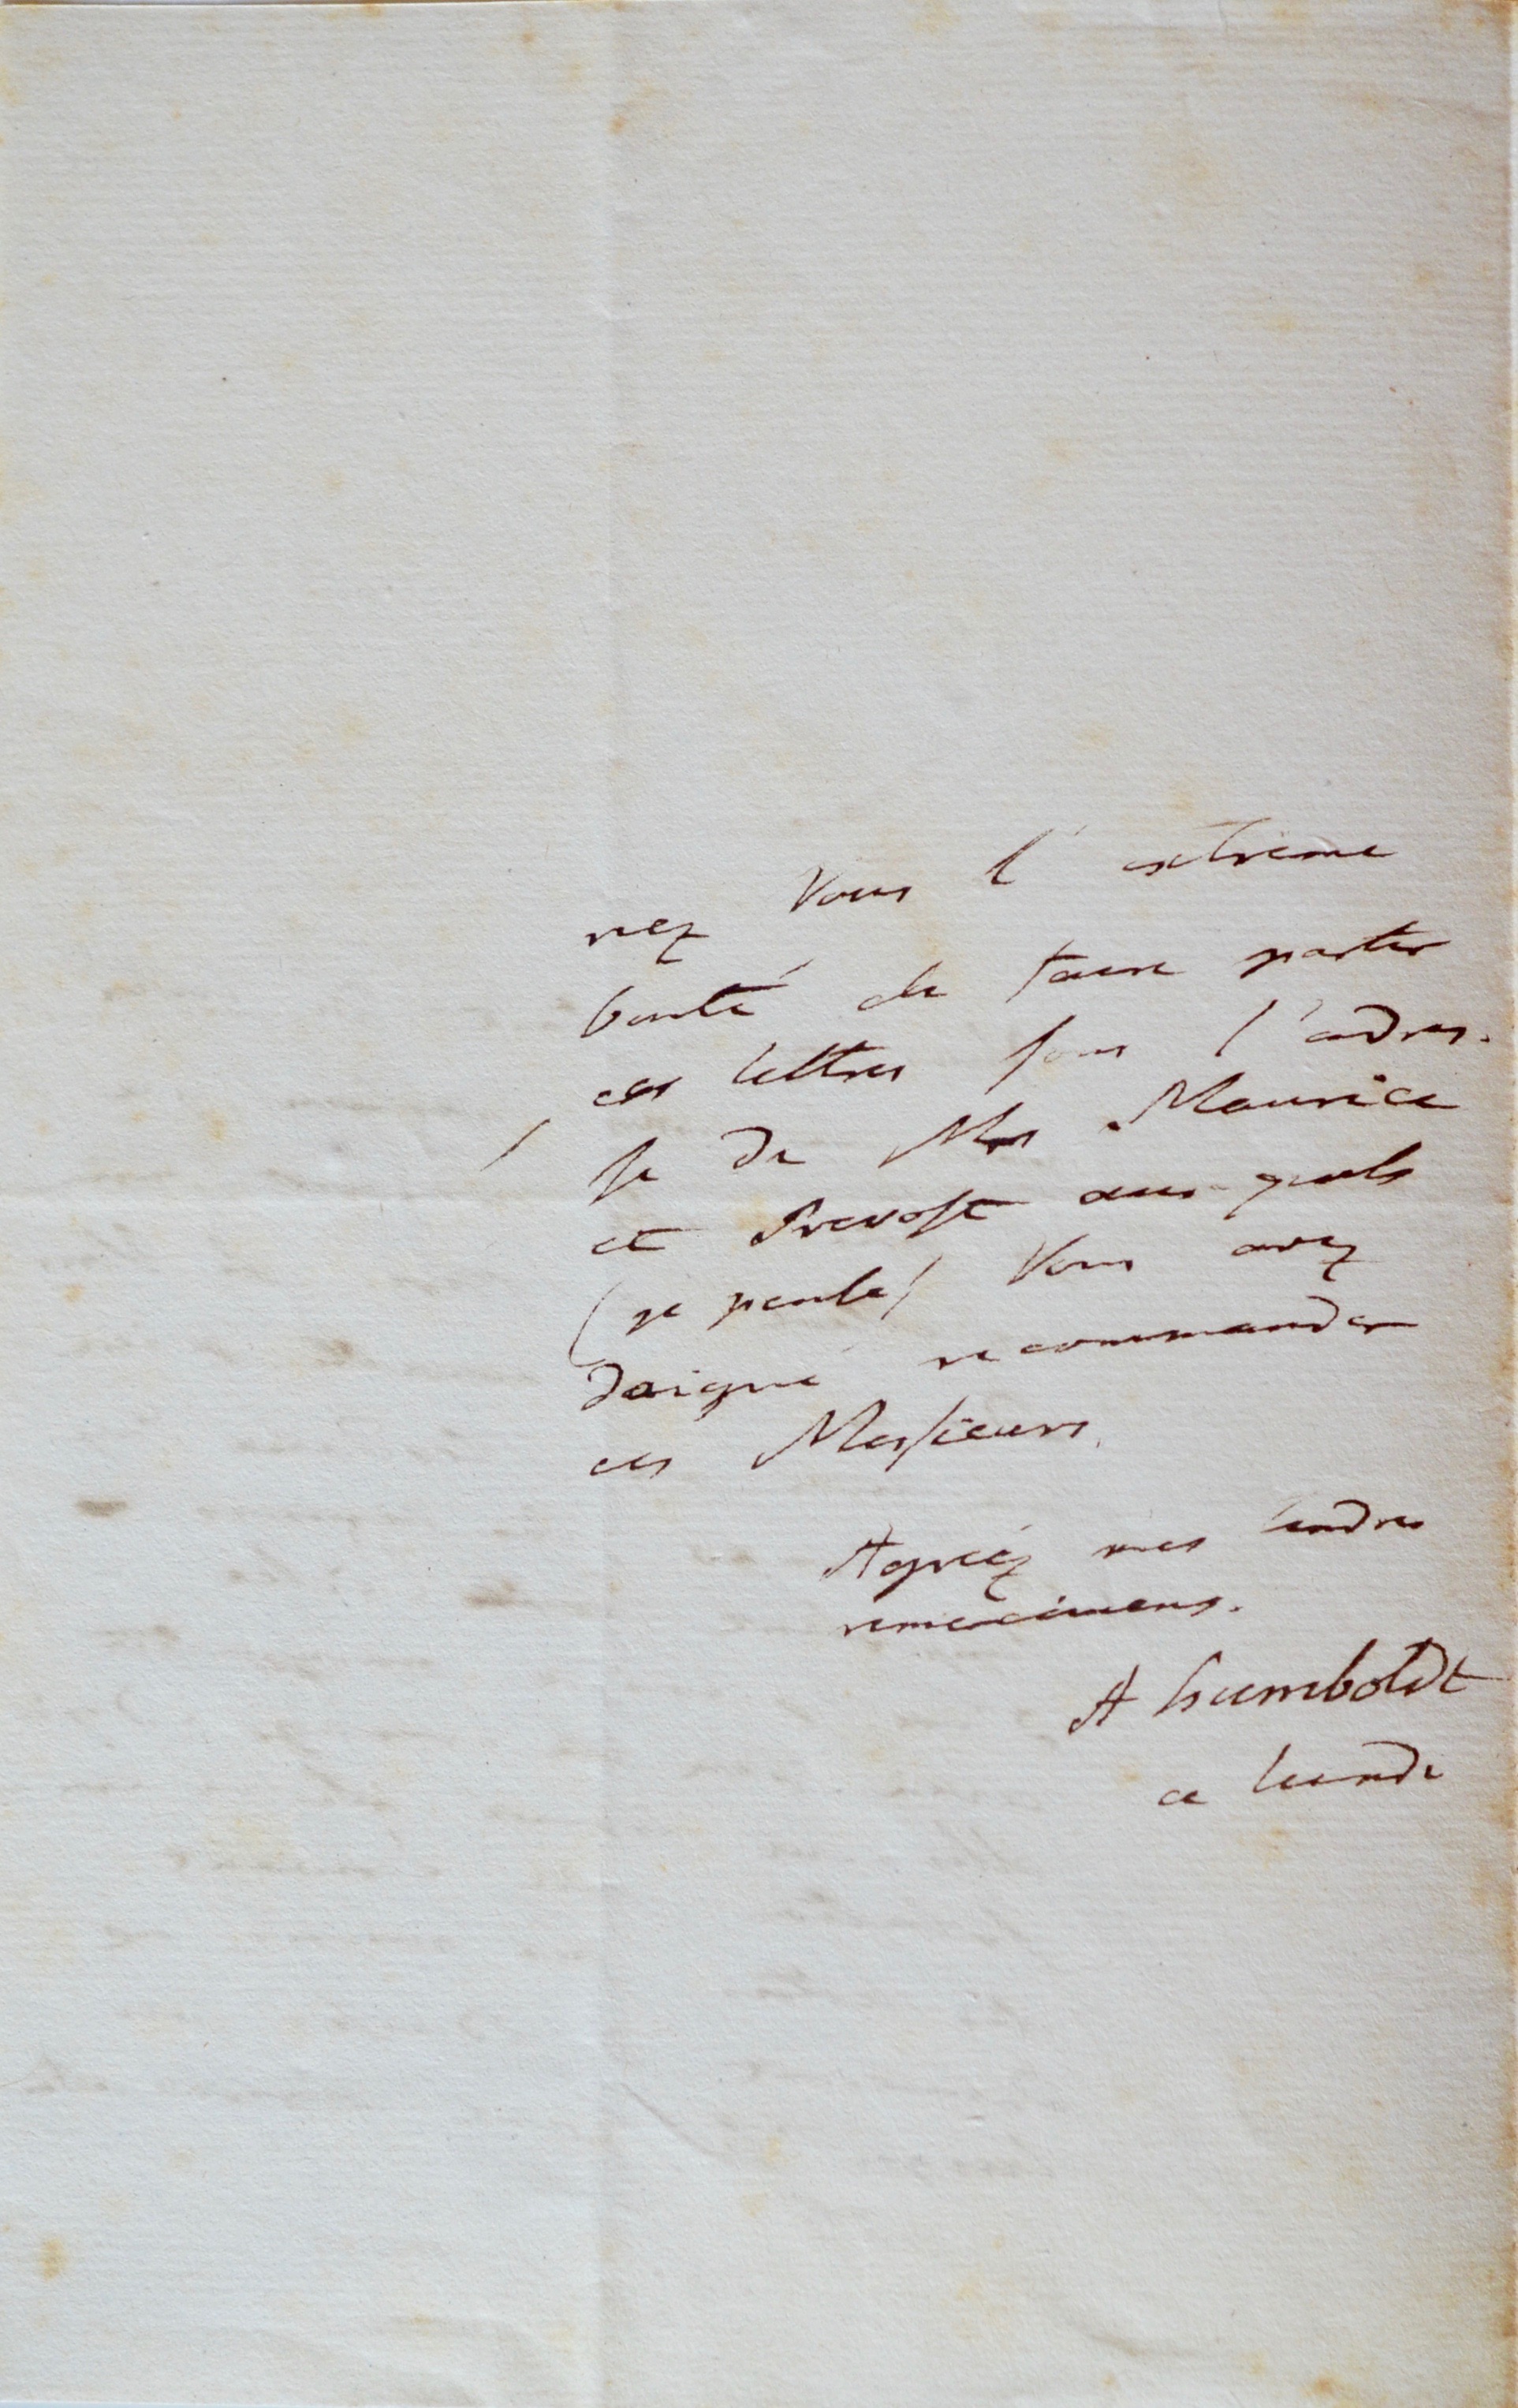 riez Vous l'extrème
bonté de faire partir
ces lettres sous l'adres-
se de Mrs Maurice
et Prevost aux quels
(je pense) Vous avez
daigné recommander
ces Messieurs.
Agréez mes tendres
remercimens.
A Humboldt
ce lundi